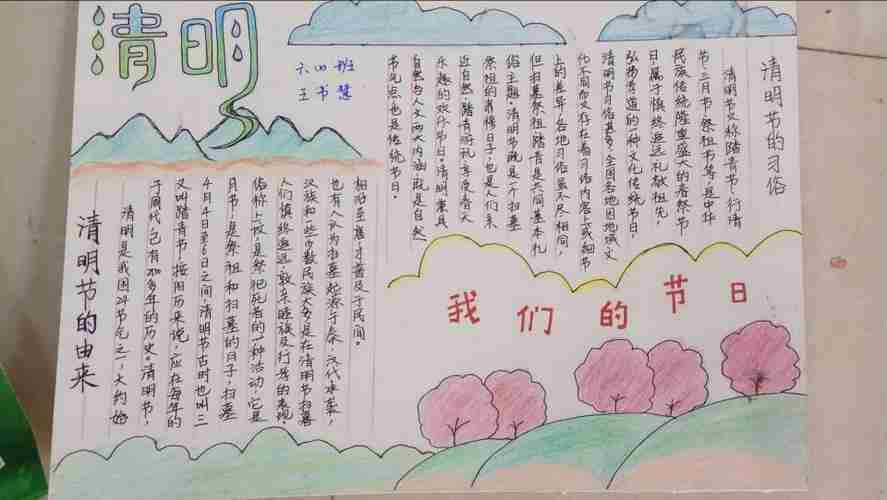 清明
六四班
王书慧
清明节的习俗
清明节又称踏青节、行清
节、三月节、祭祖节等,是中华
民族传统隆重盛大的春祭节
日,属于慎终追远、礼敬祖先,
弘扬孝道的一种文化传统节日,
清明节习俗甚多,全国各地因地域文
化不同而又存在着习俗内容上或细节
上的差异,各地习俗虽不尽相同,
但扫墓祭祖、踏青是共同基本礼
俗主题。清明节既是一个扫墓
祭祖的肃穆日子,也是人们亲
近自然、踏青游玩、享受春天
乐趣的欢乐节日。清明兼具
自然与人文两大内涵,既是自然
节气点,也是传统节日。
清明节的由来
清明是我国24节气之一,大约始
于周代,已有2500多年的历史。清明节,
又叫踏青节,按阳历来说,应在每年的
4月4日至6日之间,清明节古时也叫三
月节,是祭祖和扫墓的日子,扫墓
俗称上坟,是祭祀死者的一种活动,它是
人们慎终追远,敦亲睦族及行孝的表现。
汉族和一些少数民族大多是在清明节扫墓
也有人认为扫墓起源于秦,汉代
相沿至唐,才普及于民间。
我们的节日